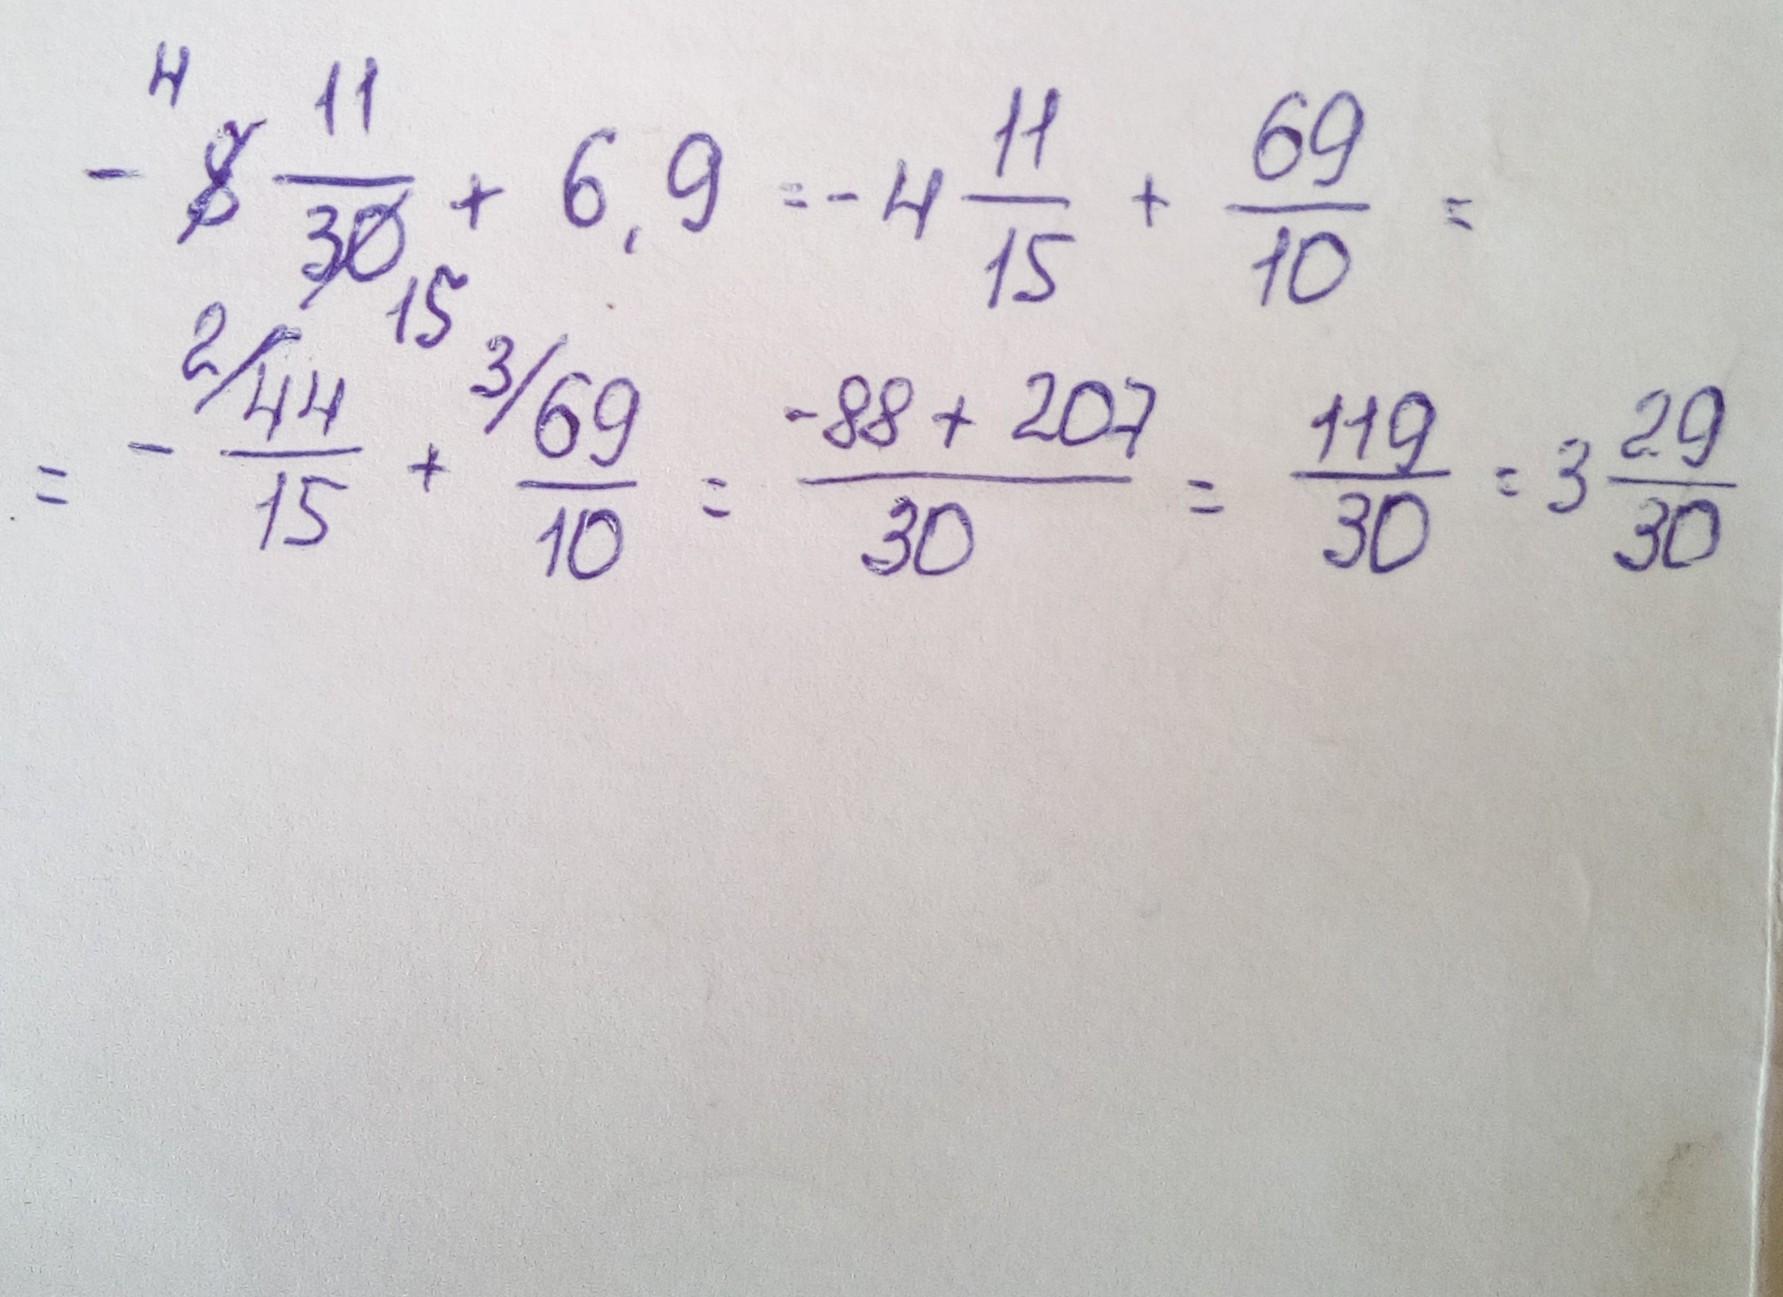 - 8 11/30 + 6,9 = - 4 11/15 + 69/10 =
4 15
= - 2/ 44/15 + 3/ 69/10 = (-88 + 207)/30 = 119/30 = 3 29/30